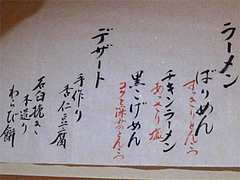 ラーメン
ばりめん
すっきりとんこつ
チキンラーメン
あっさり塩
黒こげめん
コクと深みのとんこつ
デザート
手作り
杏仁豆腐
石臼挽き
本造り
わらび餅